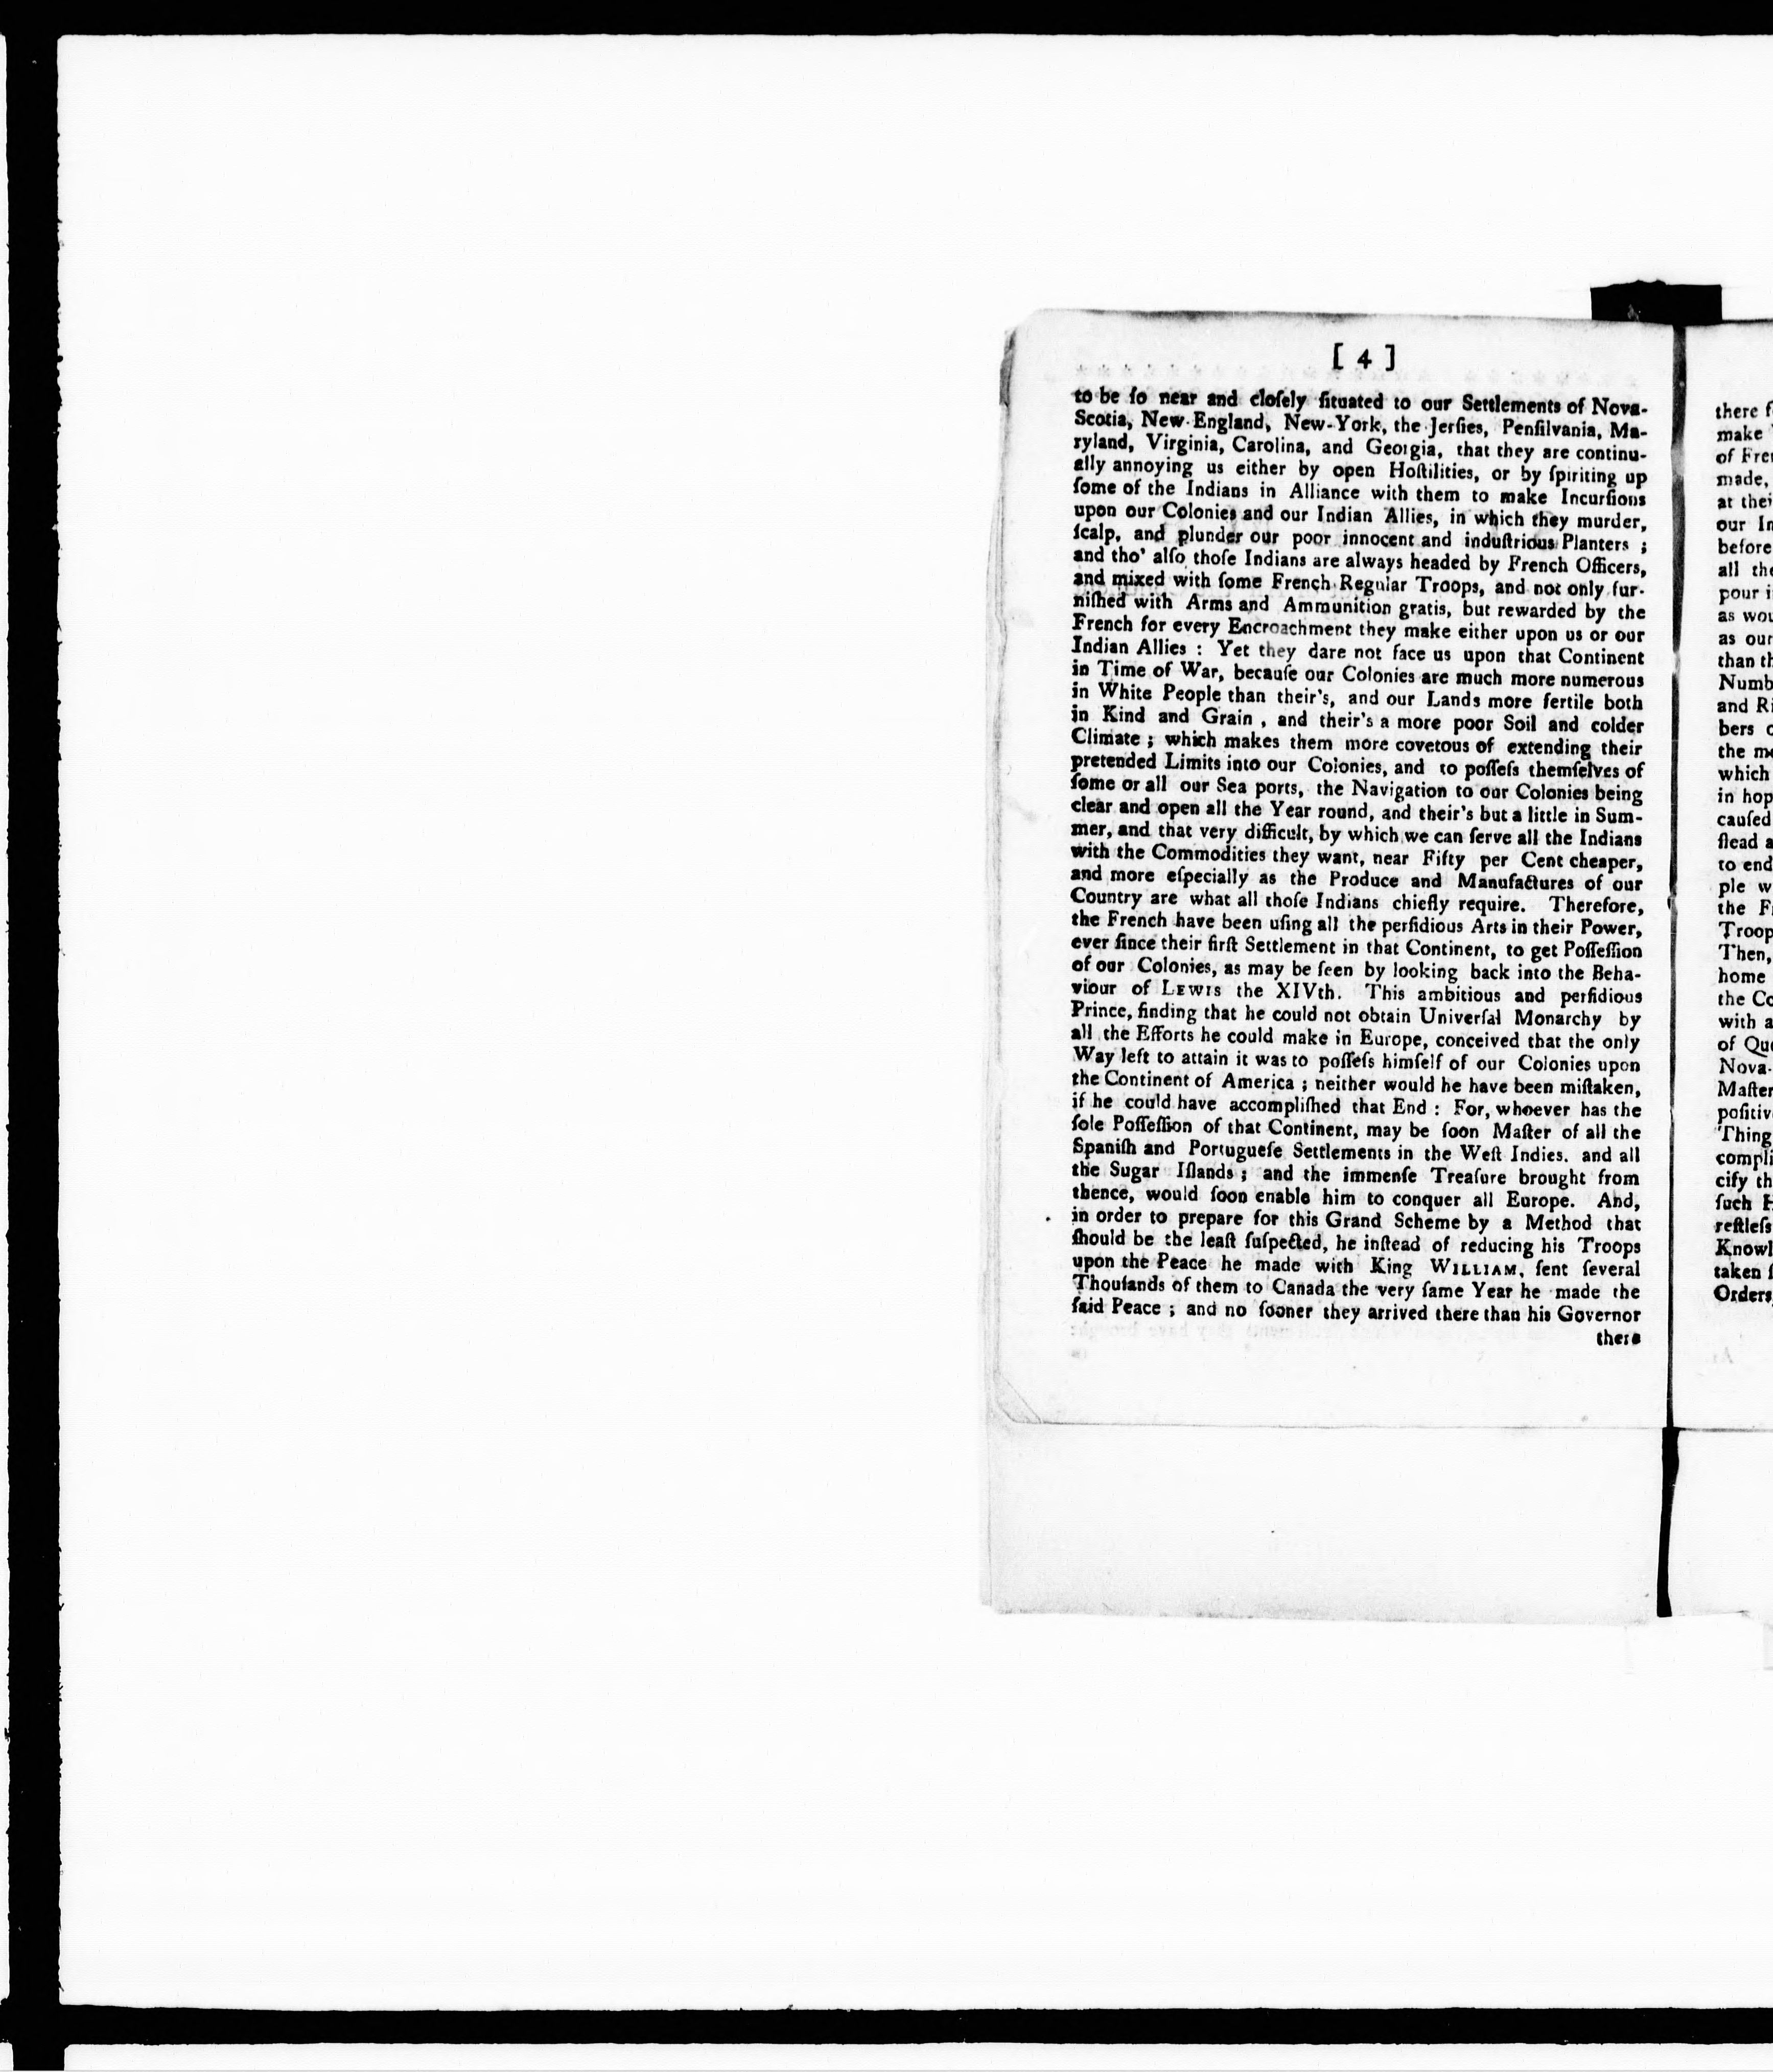 [ 4 ]
to be ſo near and cloſely ſituated to our Settlements of Nova-
Scotia, New-England, New-York, the Jerſies, Penſilvania, Ma-
ryland, Virginia, Carolina, and Georgia, that they are continu-
ally annoying us either by open Hoſtilities, or by ſpiriting up
ſome of the Indians in Alliance with them to make Incurſions
upon our Colonies and our Indian Allies, in which they murder,
ſcalp, and plunder our poor innocent and induſtrious Planters ;
and tho' alſo thoſe Indians are always headed by French Officers,
and mixed with ſome French Regular Troops, and not only fur-
niſhed with Arms and Ammunition gratis, but rewarded by the
French for every Encroachment they make either upon us or our
Indian Allies : Yet they dare not face us upon that Continent
in Time of War, becauſe our Colonies are much more numerous
in White People than their's, and our Lands more fertile both
in Kind and Grain , and their's a more poor Soil and colder
Climate ; which makes them more covetous of extending their
pretended Limits into our Colonies, and to poſſeſs themſelves of
ſome or all our Sea ports, the Navigation to our Colonies being
clear and open all the Year round, and their's but a little in Sum-
mer, and that very difficult, by which we can ſerve all the Indians
with the Commodities they want, near Fifty per Cent cheaper,
and more eſpecially as the Produce and Manufactures of our
Country are what all thoſe Indians chiefly require. Therefore,
the French have been uſing all the perfidious Arts in their Power,
ever ſince their firſt Settlement in that Continent, to get Poſſeſſion
of our Colonies, as may be ſeen by looking back into the Beha-
viour of LEWIS the XIVth. This ambitious and perfidious
Prince, finding that he could not obtain Univerſal Monarchy by
all the Efforts he could make in Europe, conceived that the only
Way left to attain it was to poſſeſs himſelf of our Colonies upon
the Continent of America ; neither would he have been miſtaken,
if he could have accompliſhed that End : For, whoever has the
ſole Poſſeſſion of that Continent, may be ſoon Maſter of all the
Spaniſh and Portugueſe Settlements in the Weſt Indies. and all
the Sugar Iſlands ; and the immenſe Treaſure brought from
thence, would ſoon enable him to conquer all Europe. And,
in order to prepare for this Grand Scheme by a Method that
ſhould be the leaſt ſuſpected, he inſtead of reducing his Troops
upon the Peace he made with King WILLIAM, ſent ſeveral
Thouſands of them to Canada the very ſame Year he made the
ſaid Peace ; and no ſooner they arrived there than his Governor
there
there
make
of
made,
at
our
before
all
pour
as
as our
than
and
bers
the
which
in
cauſed
ſtead
to
ple
the
Troop
Then,
home
the
with
of
Nova-
Maſter
Thing
cify
ſuch
reſtleſs
taken
Orders,